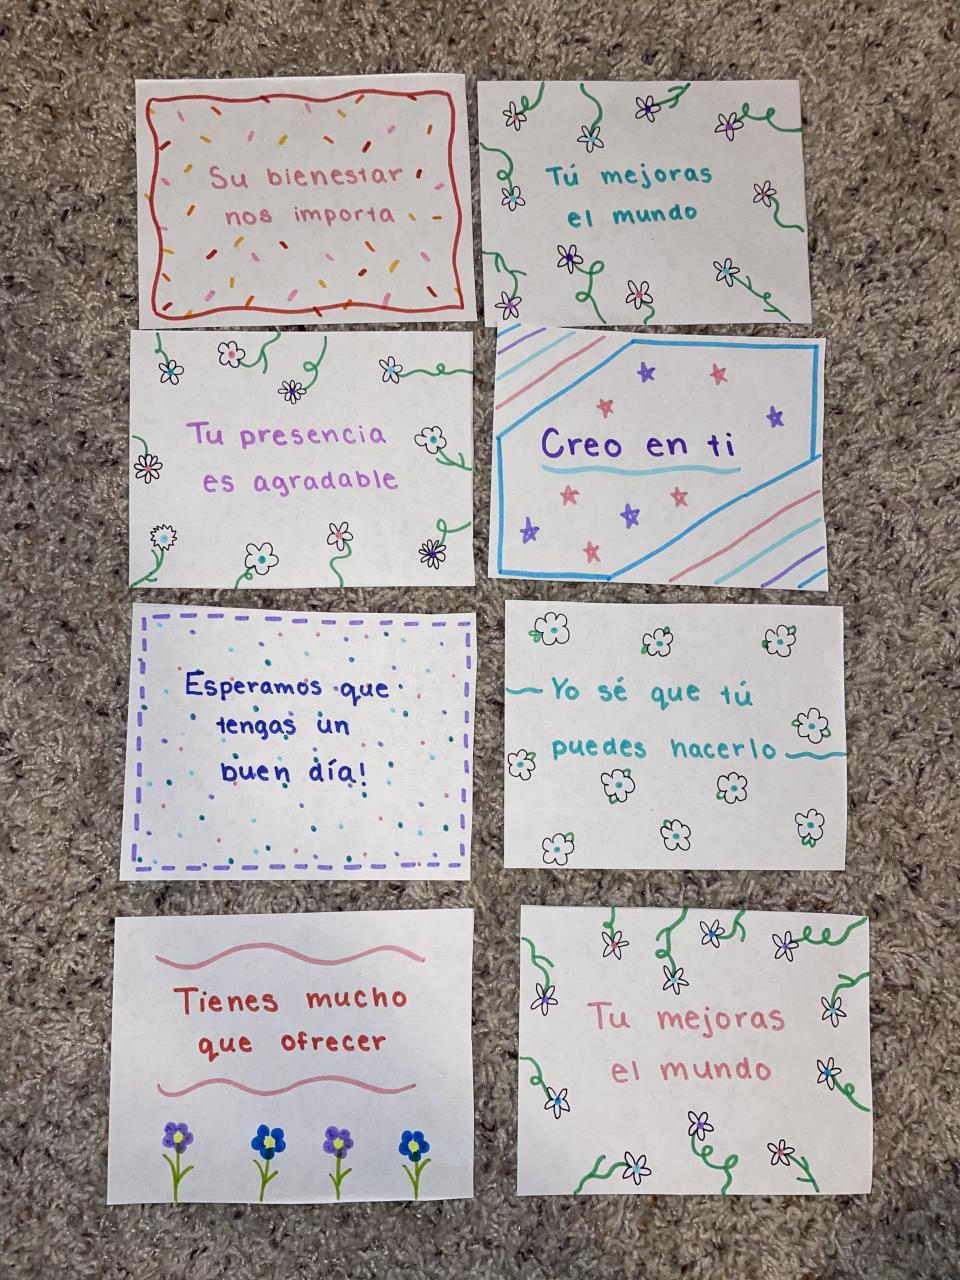 Su bienestar
nos importa
Tú mejoras
el mundo
Tu presencia
es agradable
Creo en ti
Esperamos que
tengas un
buen día!
Yo sé que tú
puedes hacerlo
Tienes mucho
que ofrecer
Tu mejoras
el mundo